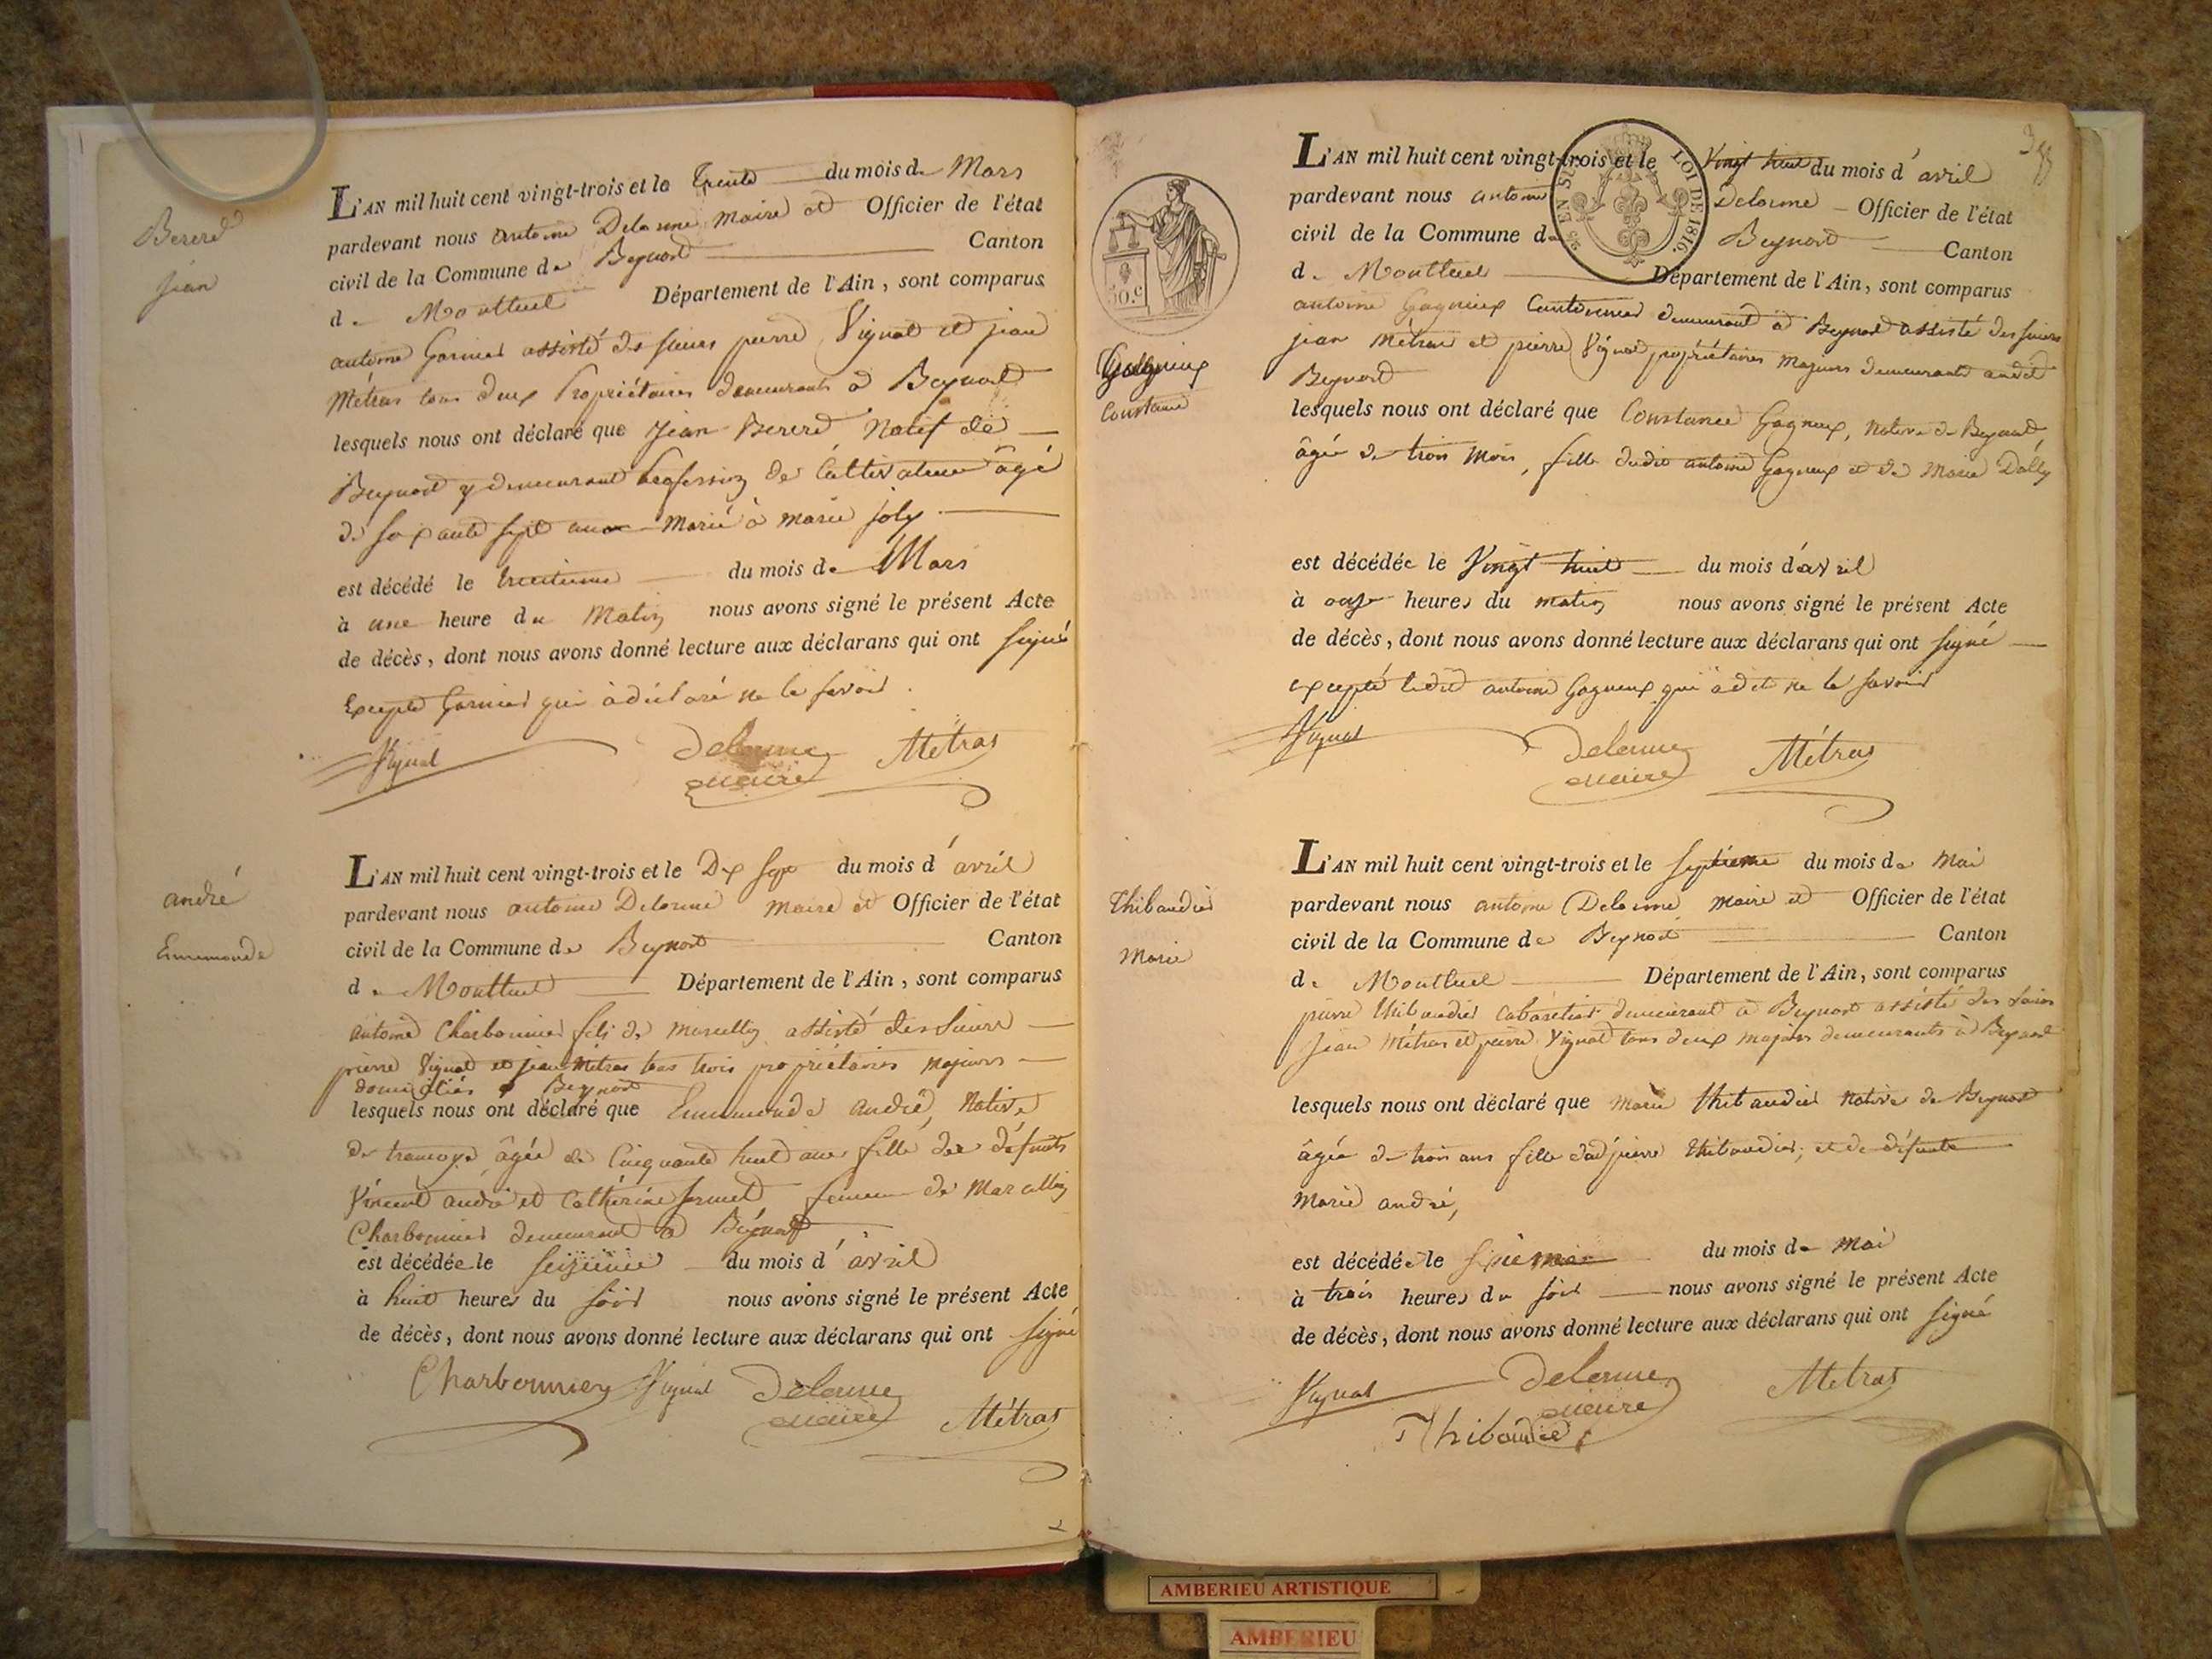 Bererd
jean
L'AN mil huit cent vingt-trois et le trente du mois de Mars
pardevant nous antoine Delorme Maire et Officier de l'état
civil de la Commune de Beynost Canton
de Montluel Département de l'Ain, sont comparus
antoine Garnier assisté des sieurs pierre Vignat et jean
Métras tous deux Propriétaires demeurants à Beynost
lesquels nous ont déclaré que Jean Bererd Natif de
Beynost y demeurant profession de Cultivateur âgé
de soixante sept ans Marié à marie joly
est décédé le trentieme du mois de Mars
à une heure du Matin nous avons signé le présent Acte
de décès, dont nous avons donné lecture aux déclarans qui ont signé
Excepté Garnier qui à déclaré ne le savoir.
Vignat Delorme Métras
maire
andré
Ennemonde
L'AN mil huit cent vingt-trois et le Dix sept du mois d'avril
pardevant nous antoine Delorme Maire et Officier de l'état
civil de la Commune de Beynost Canton
de Montluel Département de l'Ain, sont comparus
antoine Charbonnier fils de Marcellin assisté des sieurs
pierre Vignat et jean Métras tous trois propriétaires majeurs
domiciliés à Beynost
lesquels nous ont déclaré que Ennemonde andré, Native
de tramoye âgée de Cinquante huit ans fille des défunts
Vincent andré et Cathérine femme de Marcellin
Charbonnier demeurant à Beynost
est décédée le seizieme du mois d'avril
à huit heures du soir nous avons signé le présent Acte
de décès, dont nous avons donné lecture aux déclarans qui ont signé
Charbonnier Vignat Delorme
maire Métras
388
EN SUS LOI DE 1816.
50.c
Gagneux
Constance
L'AN mil huit cent vingt-trois et le Vingt huit du mois d'avril
pardevant nous antoine Delorme Officier de l'état
civil de la Commune de Beynost Canton
de Montluel Département de l'Ain, sont comparus
antoine Gagneux Cantonnier demeurant à Beynost assisté des sieurs
jean Métras et pierre Vignat propriétaires majeurs demeurants audit
Beynost
lesquels nous ont déclaré que Constance Gagneux, Native de Beynost,
âgée de trois mois, fille dudit antoine Gagneux et de Marie
est décédée le Vingt huit du mois d'avril
à onze heures du matin nous avons signé le présent Acte
de décès, dont nous avons donné lecture aux déclarans qui ont signé
excepté ledit antoine Gagneux qui à dit ne le savoir
Vignat Delorme Métras
maire
Thibaudier
Marie
L'AN mil huit cent vingt-trois et le septieme du mois de Mai
pardevant nous antoine Delorme maire et Officier de l'état
civil de la Commune de Beynost Canton
de Montluel Département de l'Ain, sont comparus
pierre thibaudier Cabaretier demeurant à Beynost assisté des sieurs
Jean Métras et pierre Vignat tous deux majeurs demeurants à Beynost
lesquels nous ont déclaré que marie thibaudier native de Beynost
âgée de trois ans fille dud pierre thibaudier, et de défunte
Marie andré,
est décédée le sixieme du mois de Mai
à trois heures du soir nous avons signé le présent Acte
de décès, dont nous avons donné lecture aux déclarans qui ont signé
Vignat Delorme Métras
maire
Thibaudier
AMBERIEU ARTISTIQUE
AMBERIEU